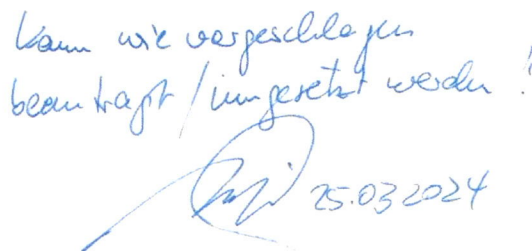 Kann wie vorgeschlagen
beantragt / umgesetzt werden!
25.03.2024